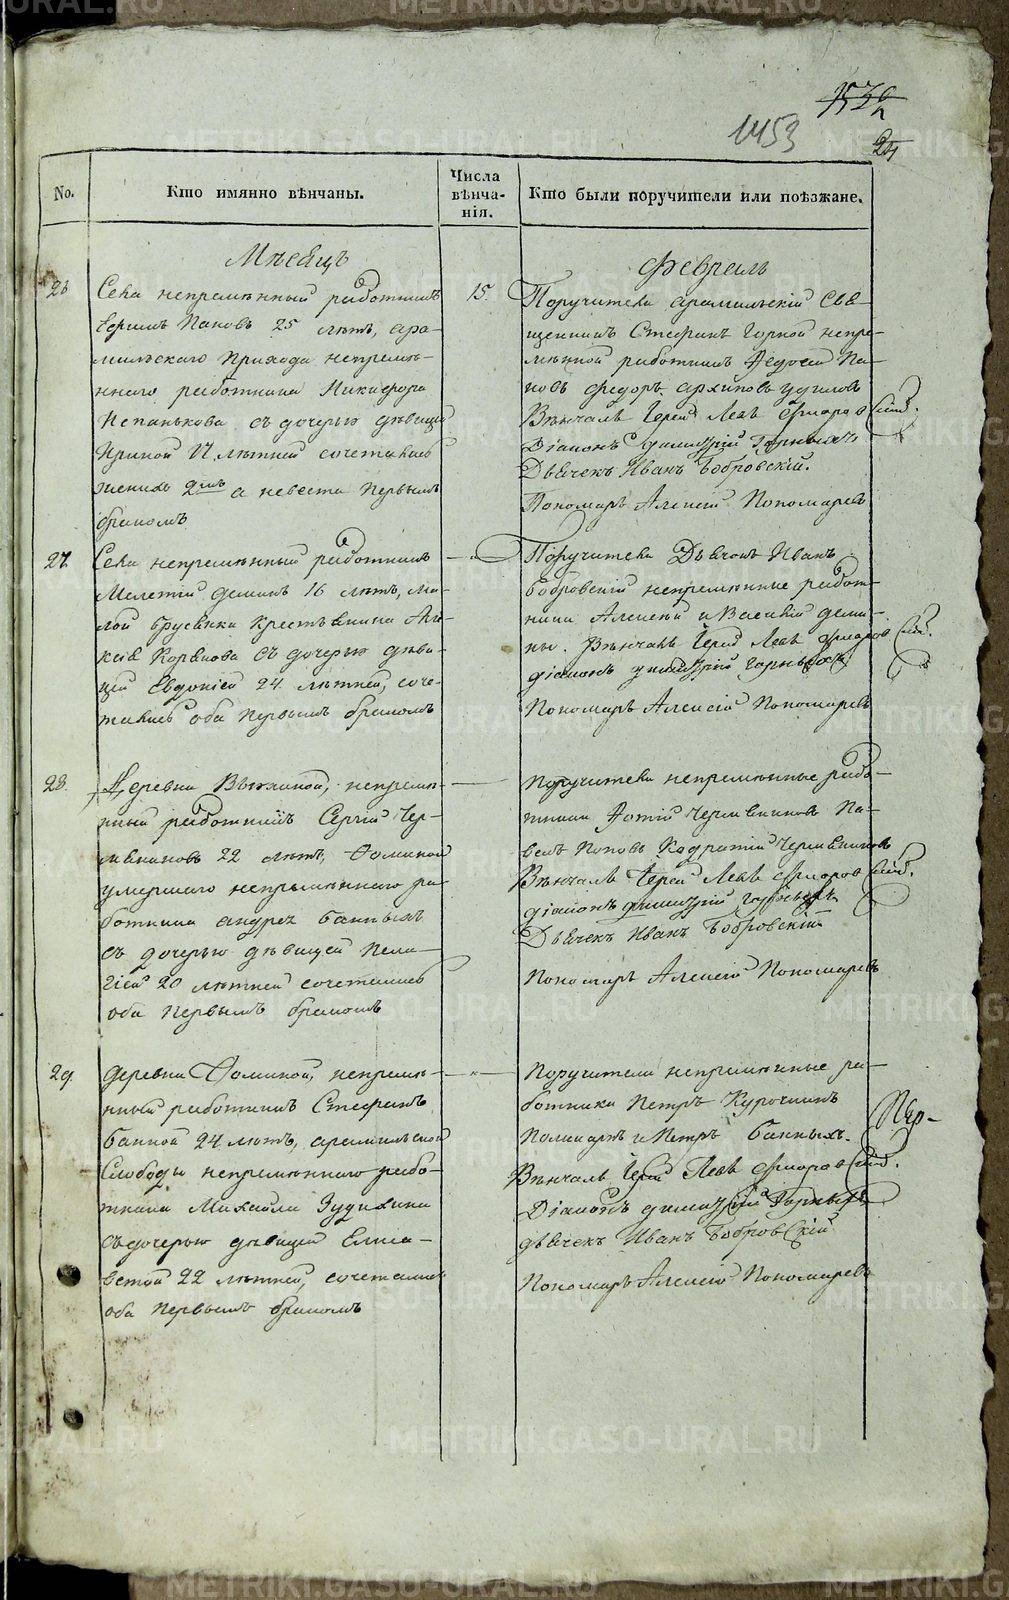 1453
24
No.
Кто имянно вѣнчаны.
Числа
вѣнча-
нія.
Кто были поручители или поѣзжане.
Мѣсяцъ
Февраль
26
Села непремѣнный работникъ
Ефримъ Пановъ 25 лѣтъ, ара-
мильскаго прихода непремѣ-
ннаго работника Никифора
Непанькова съ дочерью дѣвицей
Ириной 17 лѣтней сочетались
женихъ 2мъ а невеста первымъ
бракомъ
15.
Поручители арамильскій Свя-
щенникъ Стефанъ Горной непре-
мѣнной работникъ Федосей Па-
новъ Федоръ архиповъ удиловъ
Вѣнчалъ Іерей Левъ Флоровскій.
Діаконъ Димитрій Горныхъ
Дьячекъ Иванъ Бобровскій.
Пономарь Алексій Пономаревъ
27.
Села непремѣнный работникъ
Мелетій Деминъ 16 лѣтъ, ма-
лой брусянки крестьянина Але-
ксія Корякова съ дочерью дѣви-
цей Евдокіей 24 лѣтней, соче-
тались оба первымъ бракомъ
— „ —
Поручители Дьячокъ Иванъ
Бобровскій непремѣнные работ-
ники Алексей и Василій Деми-
ны. Вѣнчалъ Іерей Левъ Флоровскій.
діаконъ димитрій Горныхъ
Пономарь Алексій Пономаревъ
28.
Деревни непремѣ-
нный работникъ Сергій Чер-
мяниновъ 22 лѣтъ, Фоминой
умершаго непремѣннаго ра-
ботника андрея банныхъ
съ дочерью дѣвицей Пела-
гіей 20 лѣтней сочетались
оба первымъ бракомъ
Поручители непремѣнные рабо-
тники Фотій Чермяниновъ Па-
велъ Поповъ Кодратій Чермяниновъ
Вѣнчалъ Іерей Левъ Флоровскій.
діаконъ димитрій горныхъ
Дьячекъ Иванъ Бобровскій
Пономарь Алексій Пономаревъ
29.
деревни Фоминой, непремѣ-
нный работникъ Стефанъ
банной 24 лѣтъ, арамильской
Слободы непремѣннаго рабо-
тника Михайла Зудихина
съ дочерью дѣвицей Елиса-
ветой 22 лѣтней, сочетались
оба первымъ бракомъ
— „ —
Поручители непремѣнные ра-
ботники Петръ Курочкинъ
Поликарпъ и Петръ банныхъ.
Вѣнчалъ Іерей Левъ Флоровскій.
Діаконъ димитрій Горныхъ
дьячекъ Иванъ Бобровскій
Пономарь Алексій Пономаревъ
METRIKI.GASO-URAL.RU